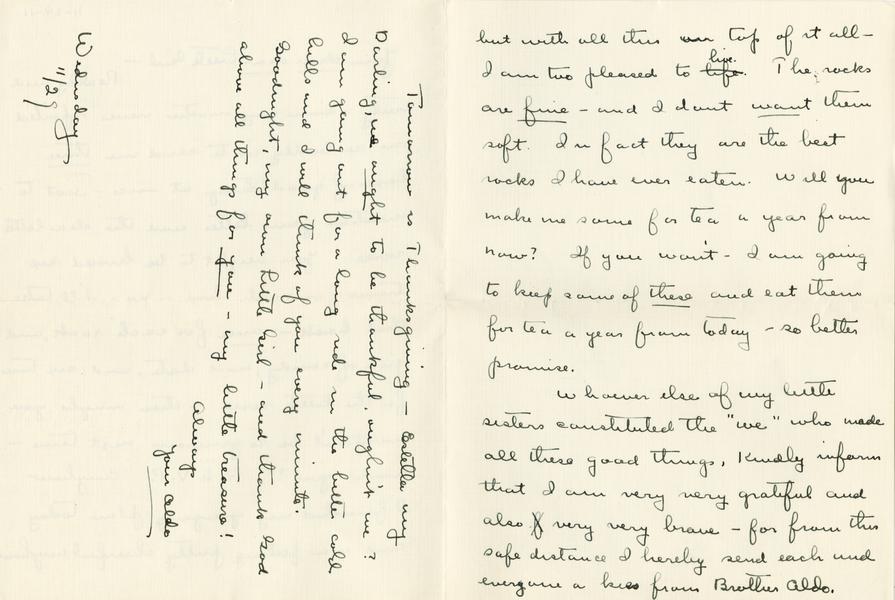 but with all this on top of it all-
I am two pleased to life. live. The rocks
are fine - and I dont want them
soft. In fact they are the best
rocks I have ever eaten. Will you
make me some for tea a year from
now? If you won't - I am going
to keep some of these and eat them
for tea a year from today - so better
promise.
Whoever else of my little
sisters constituted the "we" who made
all these good things, Kindly inform
that I am very very grateful and
also very very brave - for from this
safe distance I hereby send each and
everyone a kiss from Brother Aldo.
Tomorrow is Thanksgiving - Estella my
Darling, we ought to be thankful, oughtn't we?
I am going out for a long ride in the little cold
hills and I will think of you every minute.
Goodnight, my own little Girl - and thank God
above all things for you - my little treasure!
Always
Your Aldo
Wednesday
11/29